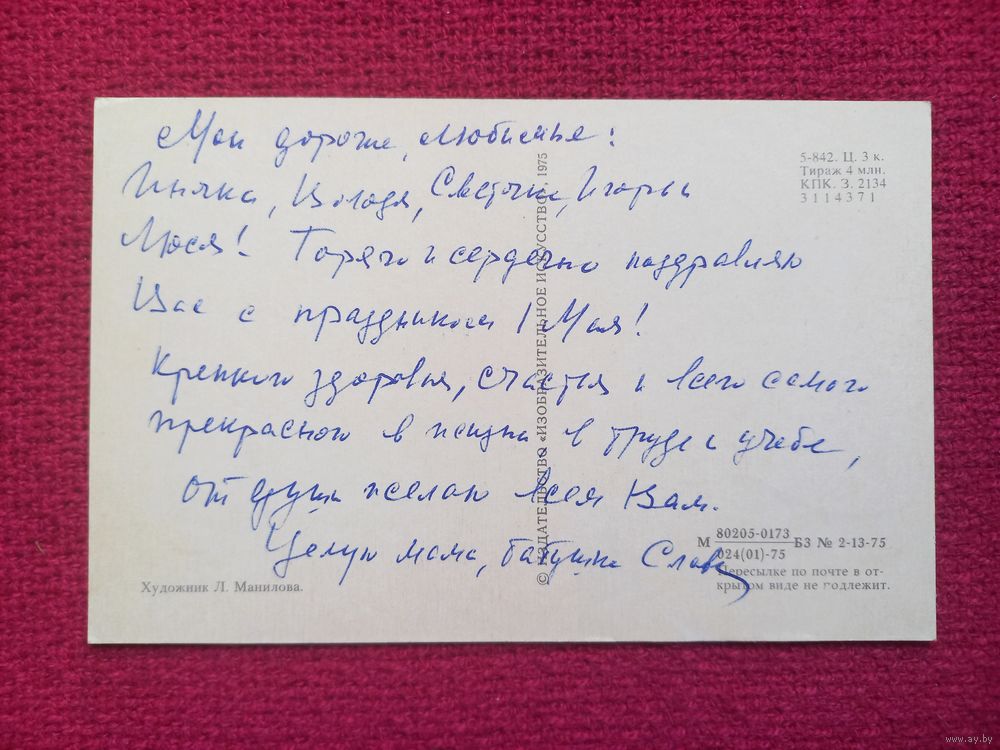 Мои дорогие, любимые:
Инычка, Володя, Светочка, Игорь и
Люся! Горячо и сердечно поздравляю
Вас с праздником 1 Мая!
Крепкого здоровья, счастья и всего самого
прекрасного в жизни в труде и учебе,
от души желаю всем Вам.
Целую мама, бабушка Слава
5-842. Ц. 3 к.
Тираж 4 млн.
КПК. З. 2134
3114371
© ИЗДАТЕЛЬСТВО «ИЗОБРАЗИТЕЛЬНОЕ ИСКУССТВО» 1975
М 80205-0173 БЗ № 2-13-75
024(01)-75
Пересылке по почте в от-
крытом виде не подлежит.
Художник Л. Манилова.
www.ay.by